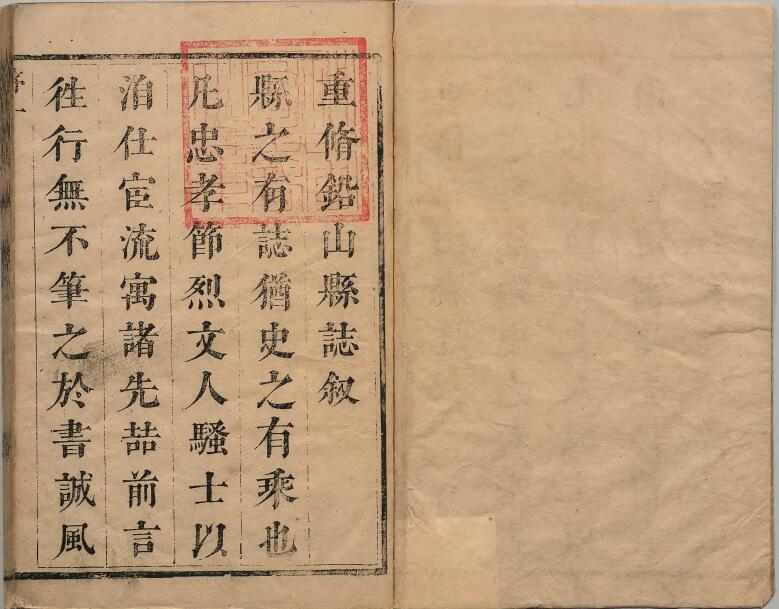 重脩鉛山縣誌叙
縣之有誌猶史之有乘也
凡忠孝節烈文人騷士以
洎仕宦流寓諸先喆前言
徃行無不筆之於書誠風